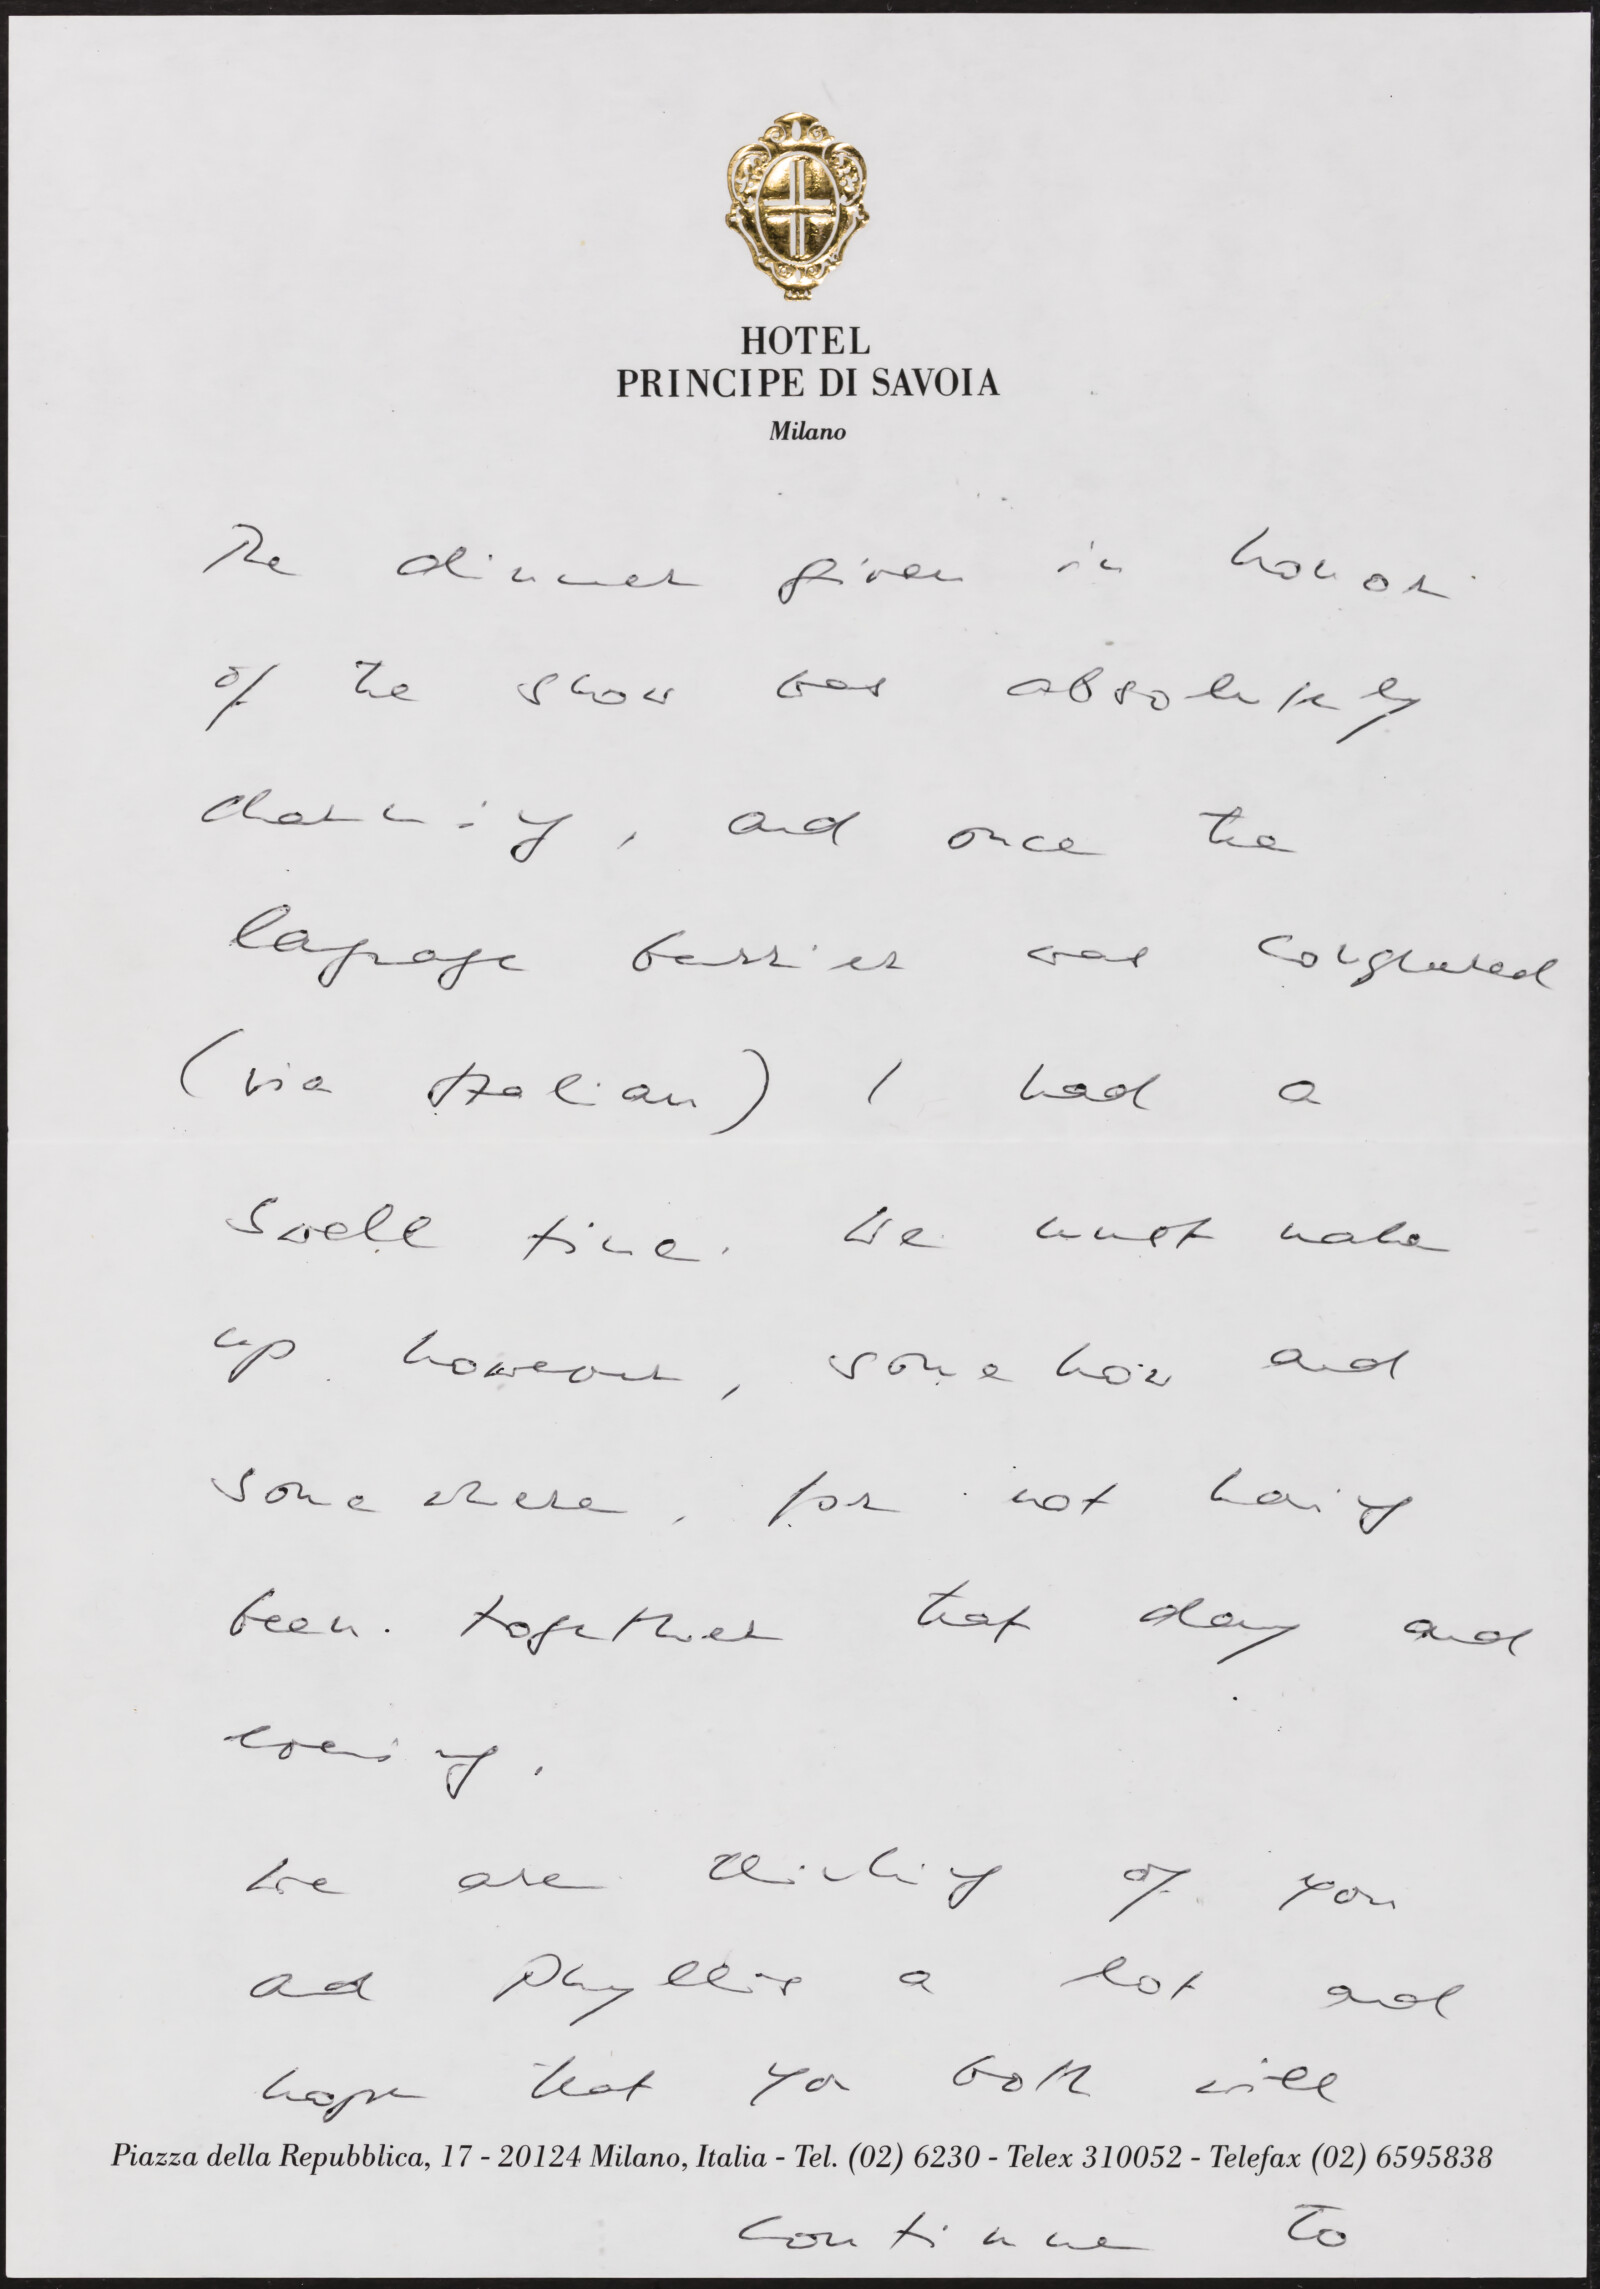 HOTEL
PRINCIPE DI SAVOIA
Milano
The dinner given in honor
of the show was absolutely
charming, and once the
language barrier was conquered
(via Italian) I had a
swell time. We must make
up however, somehow and
somewhere, for not having
been together that day and
evening.
We are thinking of you
and Phyllis a lot and
hope that you both will
Piazza della Repubblica, 17 - 20124 Milano, Italia - Tel. (02) 6230 - Telex 310052 - Telefax (02) 6595838
continue to